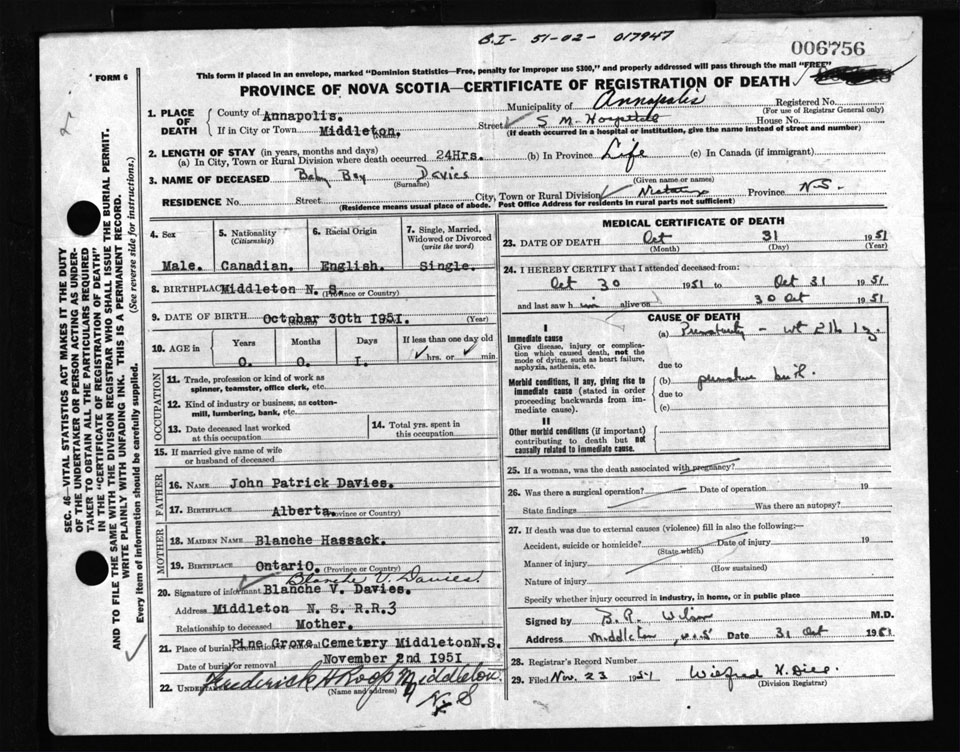 B.I- 51-02- 017947
006756
FORM 6
This form if placed in an envelope, marked "Dominion Statistics—Free, penalty for improper use $300," and properly addressed will pass through the mail "FREE"
PROVINCE OF NOVA SCOTIA—CERTIFICATE OF REGISTRATION OF DEATH
1. PLACE OF DEATH
County of Annapolis. Municipality of Annapolis Registered No.
(For use of Registrar General only)
If in City or Town Middleton. Street S. M. Hospital House No.
(If death occurred in a hospital or institution, give the name instead of street and number)
2. LENGTH OF STAY (in years, months and days)
(a) In City, Town or Rural Division where death occurred 24Hrs. (b) In Province Life (c) In Canada (if immigrant)
3. NAME OF DECEASED Baby Boy Davies
(Surname) (Given name or names)
RESIDENCE No. Street City, Town or Rural Division Nictaux Province N.S.
(Residence means usual place of abode. Post Office Address for residents in rural parts not sufficient)
4. Sex 5. Nationality (Citizenship) 6. Racial Origin 7. Single, Married, Widowed or Divorced (write the word)
Male. Canadian. English. Single.
8. BIRTHPLACE Middleton N. S.
(Province or Country)
9. DATE OF BIRTH October 30th 1951.
(Month) (Year)
10. AGE in Years Months Days If less than one day old
0. 0. I. hrs. or min.
OCCUPATION
11. Trade, profession or kind of work as spinner, teamster, office clerk, etc.
12. Kind of industry or business, as cotton-mill, lumbering, bank, etc.
13. Date deceased last worked at this occupation
14. Total yrs. spent in this occupation
15. If married give name of wife or husband of deceased
FATHER
16. NAME John Patrick Davies.
17. BIRTHPLACE Alberta.
(Province or Country)
MOTHER
18. MAIDEN NAME Blanche Hassack.
19. BIRTHPLACE Ontario. (Province or Country)
Blanche V. Davies.
20. Signature of informant Blanche V. Davies.
Address Middleton N. S. R.R.3
Relationship to deceased Mother.
21. Place of burial, cremation or removal Pine Grove Cemetery Middleton N.S.
Date of burial or removal November 2nd 1951
22. UNDERTAKER Frederick H Roop Middleton
(Name and address)
N. S
MEDICAL CERTIFICATE OF DEATH
23. DATE OF DEATH Oct 31 1951
(Month) (Day) (Year)
24. I HEREBY CERTIFY that I attended deceased from:
Oct 30 1951 to Oct 31 1951
and last saw him alive on 30 Oct 1951
CAUSE OF DEATH
I
Immediate cause
Give disease, injury or complication which caused death, not the mode of dying, such as heart failure, asphyxia, asthenia, etc.
(a) Prematurity - wt 2 lb
due to
Morbid conditions, if any, giving rise to immediate cause (stated in order proceeding backwards from immediate cause).
(b)
due to
(c)
II
Other morbid conditions (if important) contributing to death but not causally related to immediate cause.
25. If a woman, was the death associated with pregnancy?
26. Was there a surgical operation? Date of operation 19
State findings Was there an autopsy?
27. If death was due to external causes (violence) fill in also the following:—
Accident, suicide or homicide? Date of injury 19
(State which)
Manner of injury
(How sustained)
Nature of injury
Specify whether injury occurred in industry, in home, or in public place
Signed by B. R. Wilson M.D.
Address Middleton, N.S Date 31 Oct 1951
28. Registrar's Record Number
29. Filed Nov. 23 1951
(Division Registrar)
SEC. 46—VITAL STATISTICS ACT MAKES IT THE DUTY
OF THE UNDERTAKER OR PERSON ACTING AS UNDER-
TAKER TO OBTAIN ALL THE PARTICULARS REQUIRED
IN THE "CERTIFICATE OF REGISTRATION OF DEATH"
AND TO FILE THE SAME WITH THE DIVISION REGISTRAR WHO SHALL ISSUE THE BURIAL PERMIT.
WRITE PLAINLY WITH UNFADING INK. THIS IS A PERMANENT RECORD.
Every item of information should be carefully supplied. (See reverse side for instructions.)